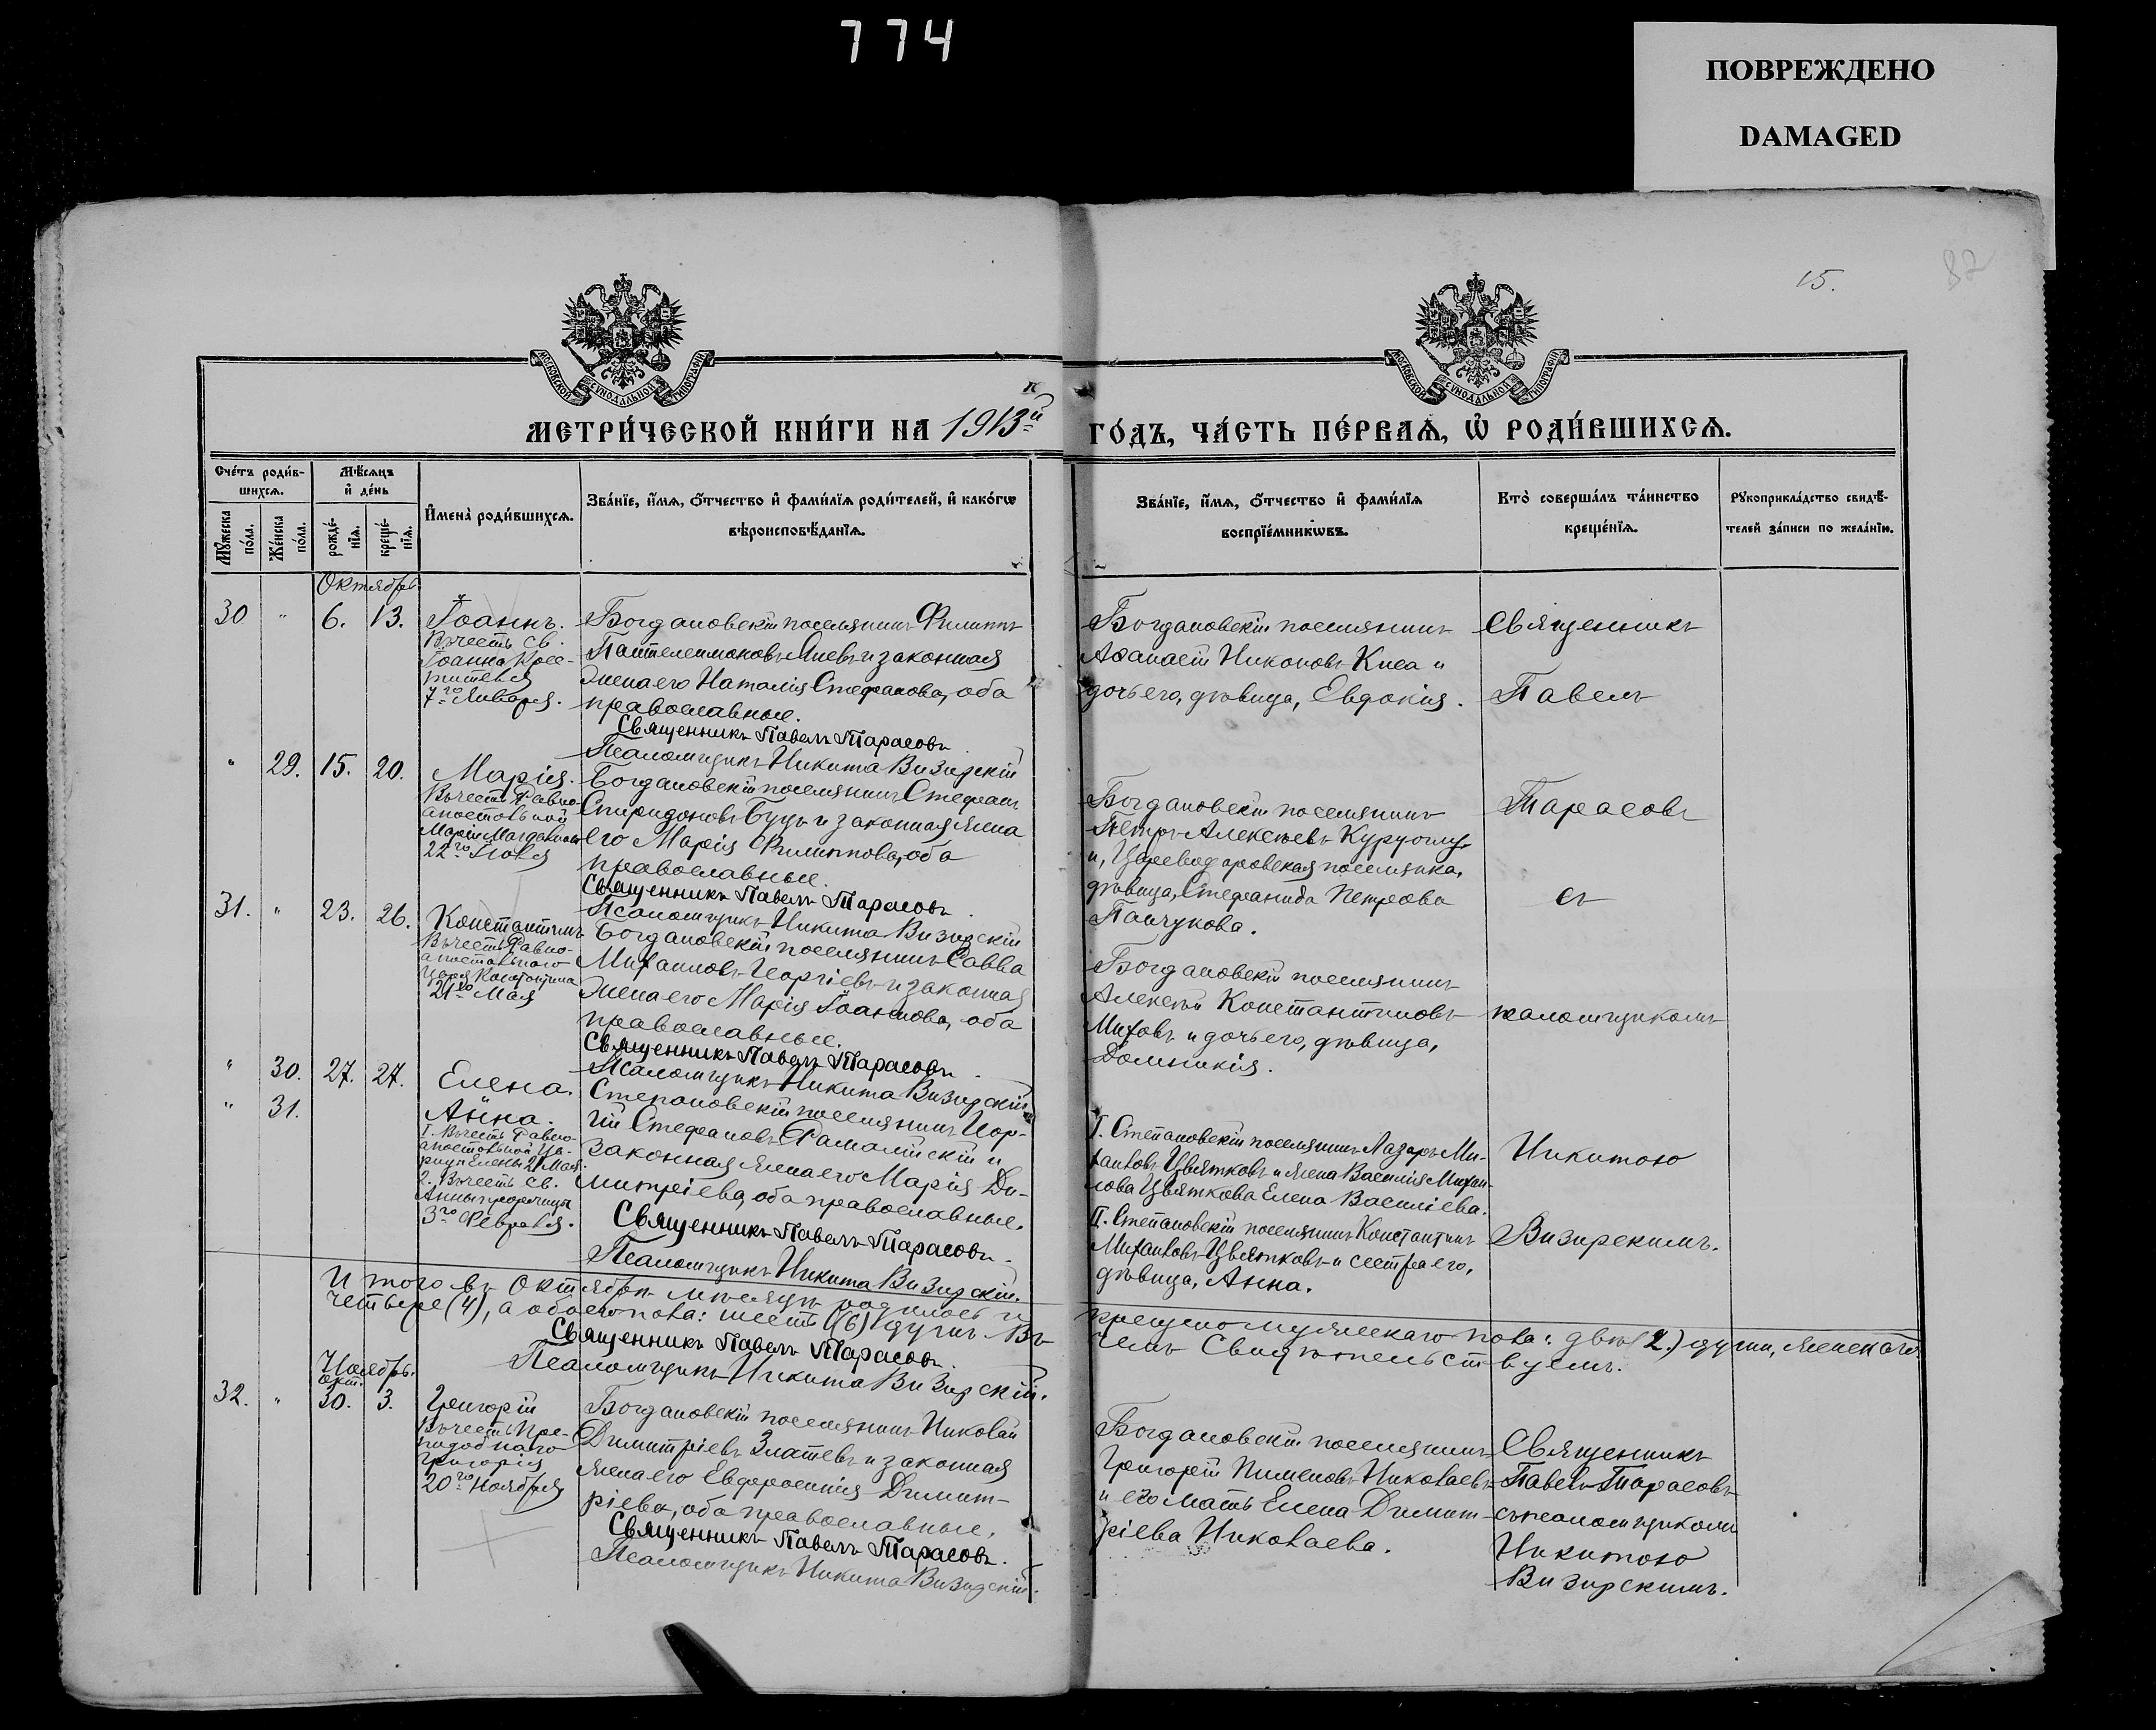 774
ПОВРЕЖДЕНО
DAMAGED
15.
82
МОСКОВСКОЙ СѴНОДАЛЬНОЙ ТИПОГРАФІИ
МОСКОВСКОЙ СѴНОДАЛЬНОЙ ТИПОГРАФІИ
МЕТРИ́ЧЕСКОЙ КНИ́ГИ НА 1913й ГО́ДЪ, ЧА́СТЬ ПЕ́РВАѦ, Ѡ҆ РОДИ́ВШИХСѦ.
Сче́тъ роди́в-
шихсѧ.
Мꙋ́жеска по́ла.
Же́нска по́ла.
Мѣ́сѧцъ
и҆ де́нь
рожде́-
нїѧ.
креще́-
нїѧ.
И҆мена̀ роди́вшихсѧ.
Зва́нїе, и҆́мѧ, ѻ҆́тчество и҆ фами́лїѧ роди́телей, и҆ како́гѡ
вѣроисповѣ́данїѧ.
Зва́нїе, и҆́мѧ, ѻ҆́тчество и҆ фами́лїѧ
воспрїе́мникѡвъ.
Кто̀ соверша́лъ та́инство
креще́нїѧ.
Рꙋкоприкла́дство свидѣ́-
телей за́писи по жела́нїю.
Октябрь.
30 " 6. 13.
Іоаннъ.
Въ честь св.
Іоанна Крес-
тителя
7го Января.
Богдановскій поселянинъ Филиппъ
Пантелеимоновъ Яневъ и законная
жена его Наталія Стефанова, оба
православные.
Священникъ Павелъ Тарасовъ.
Псаломщикъ Никита Визирскій
Богдановскій поселянинъ
Аѳанасій Никоновъ Киса и
дочь его, дѣвица, Евдокія.
Священникъ
Павелъ
" 29. 15. 20.
Марія.
Въ честь Равно-
апостольной
Маріи Магдалины
22го Іюля
Богдановскій поселянинъ Стефанъ
Спиридоновъ Буцъ и законная жена
его Марія Филиппова, оба
православные.
Священникъ Павелъ Тарасовъ.
Псаломщикъ Никита Визирскій
Богдановскій поселянинъ
Петръ Алексѣевъ
и, Цареводаровская поселянка,
дѣвица, Стефанида Петрова
Панчукова.
Тарасовъ
съ
31. " 23. 26.
Константинъ
Въ честь Равно-
апостольнаго
Царя Константина
21го Мая
Богдановскій поселянинъ Савва
Михаиловъ Георгіевъ и законная
жена его Марія Іоаннова, оба
православные.
Священникъ Павелъ Тарасовъ
Псаломщикъ Никита Визирскій
Богдановскій поселянинъ
Алексѣй Константиновъ
Миховъ и дочь его, дѣвица,
Домникія.
псаломщикомъ
" 30. 27. 27.
" 31.
Елена.
Анна.
I. Въ честь Равно-
апостольной Ца-
рицы Елены 21 Мая.
2. Въ честь св.
Анны пророчицы
3го Февраля.
Степановскій поселянинъ Геор-
гій Стефановъ и
законная жена его Марія Ди-
митріева, оба православные.
Священникъ Павелъ Тарасовъ.
Псаломщикъ Никита Визирскій.
I. Степановскій поселянинъ Лазарь Ми-
хаиловъ Цвятковъ и жена Василія Михаи-
лова Цвяткова Елена Василіева.
II. Степановскій поселянинъ Константинъ
Михаиловъ Цвятковъ и сестра его,
дѣвица, Анна.
Никитою
Визирскимъ.
Итого въ Октябрѣ мѣсяцѣ родилось и крещено мужескаго пола: двѣ (2.) души, женскаго
четыре (4), а обоего пола: шесть (6) душъ. Въ чемъ Свидѣтельствуемъ.
Священникъ Павелъ Тарасовъ.
Псаломщикъ Никита Визирскій.
Ноябрь.
Окт.
32. " 30. 3.
Григорій
Въ честь Пре-
подобнаго
Григорія
20го Ноября
Богдановскій поселянинъ Николай
Димитріевъ Златевъ и законная
жена его Евфросинія Димит-
ріева, оба православные.
Священникъ Павелъ Тарасовъ.
Псаломщикъ Никита Визирскій.
Богдановскій поселянинъ
Григорій Пименовъ Николаевъ
и его мать Елена Димит-
ріева Николаева.
Священникъ
Павелъ Тарасовъ
съ псаломщикомъ
Никитою
Визирскимъ.